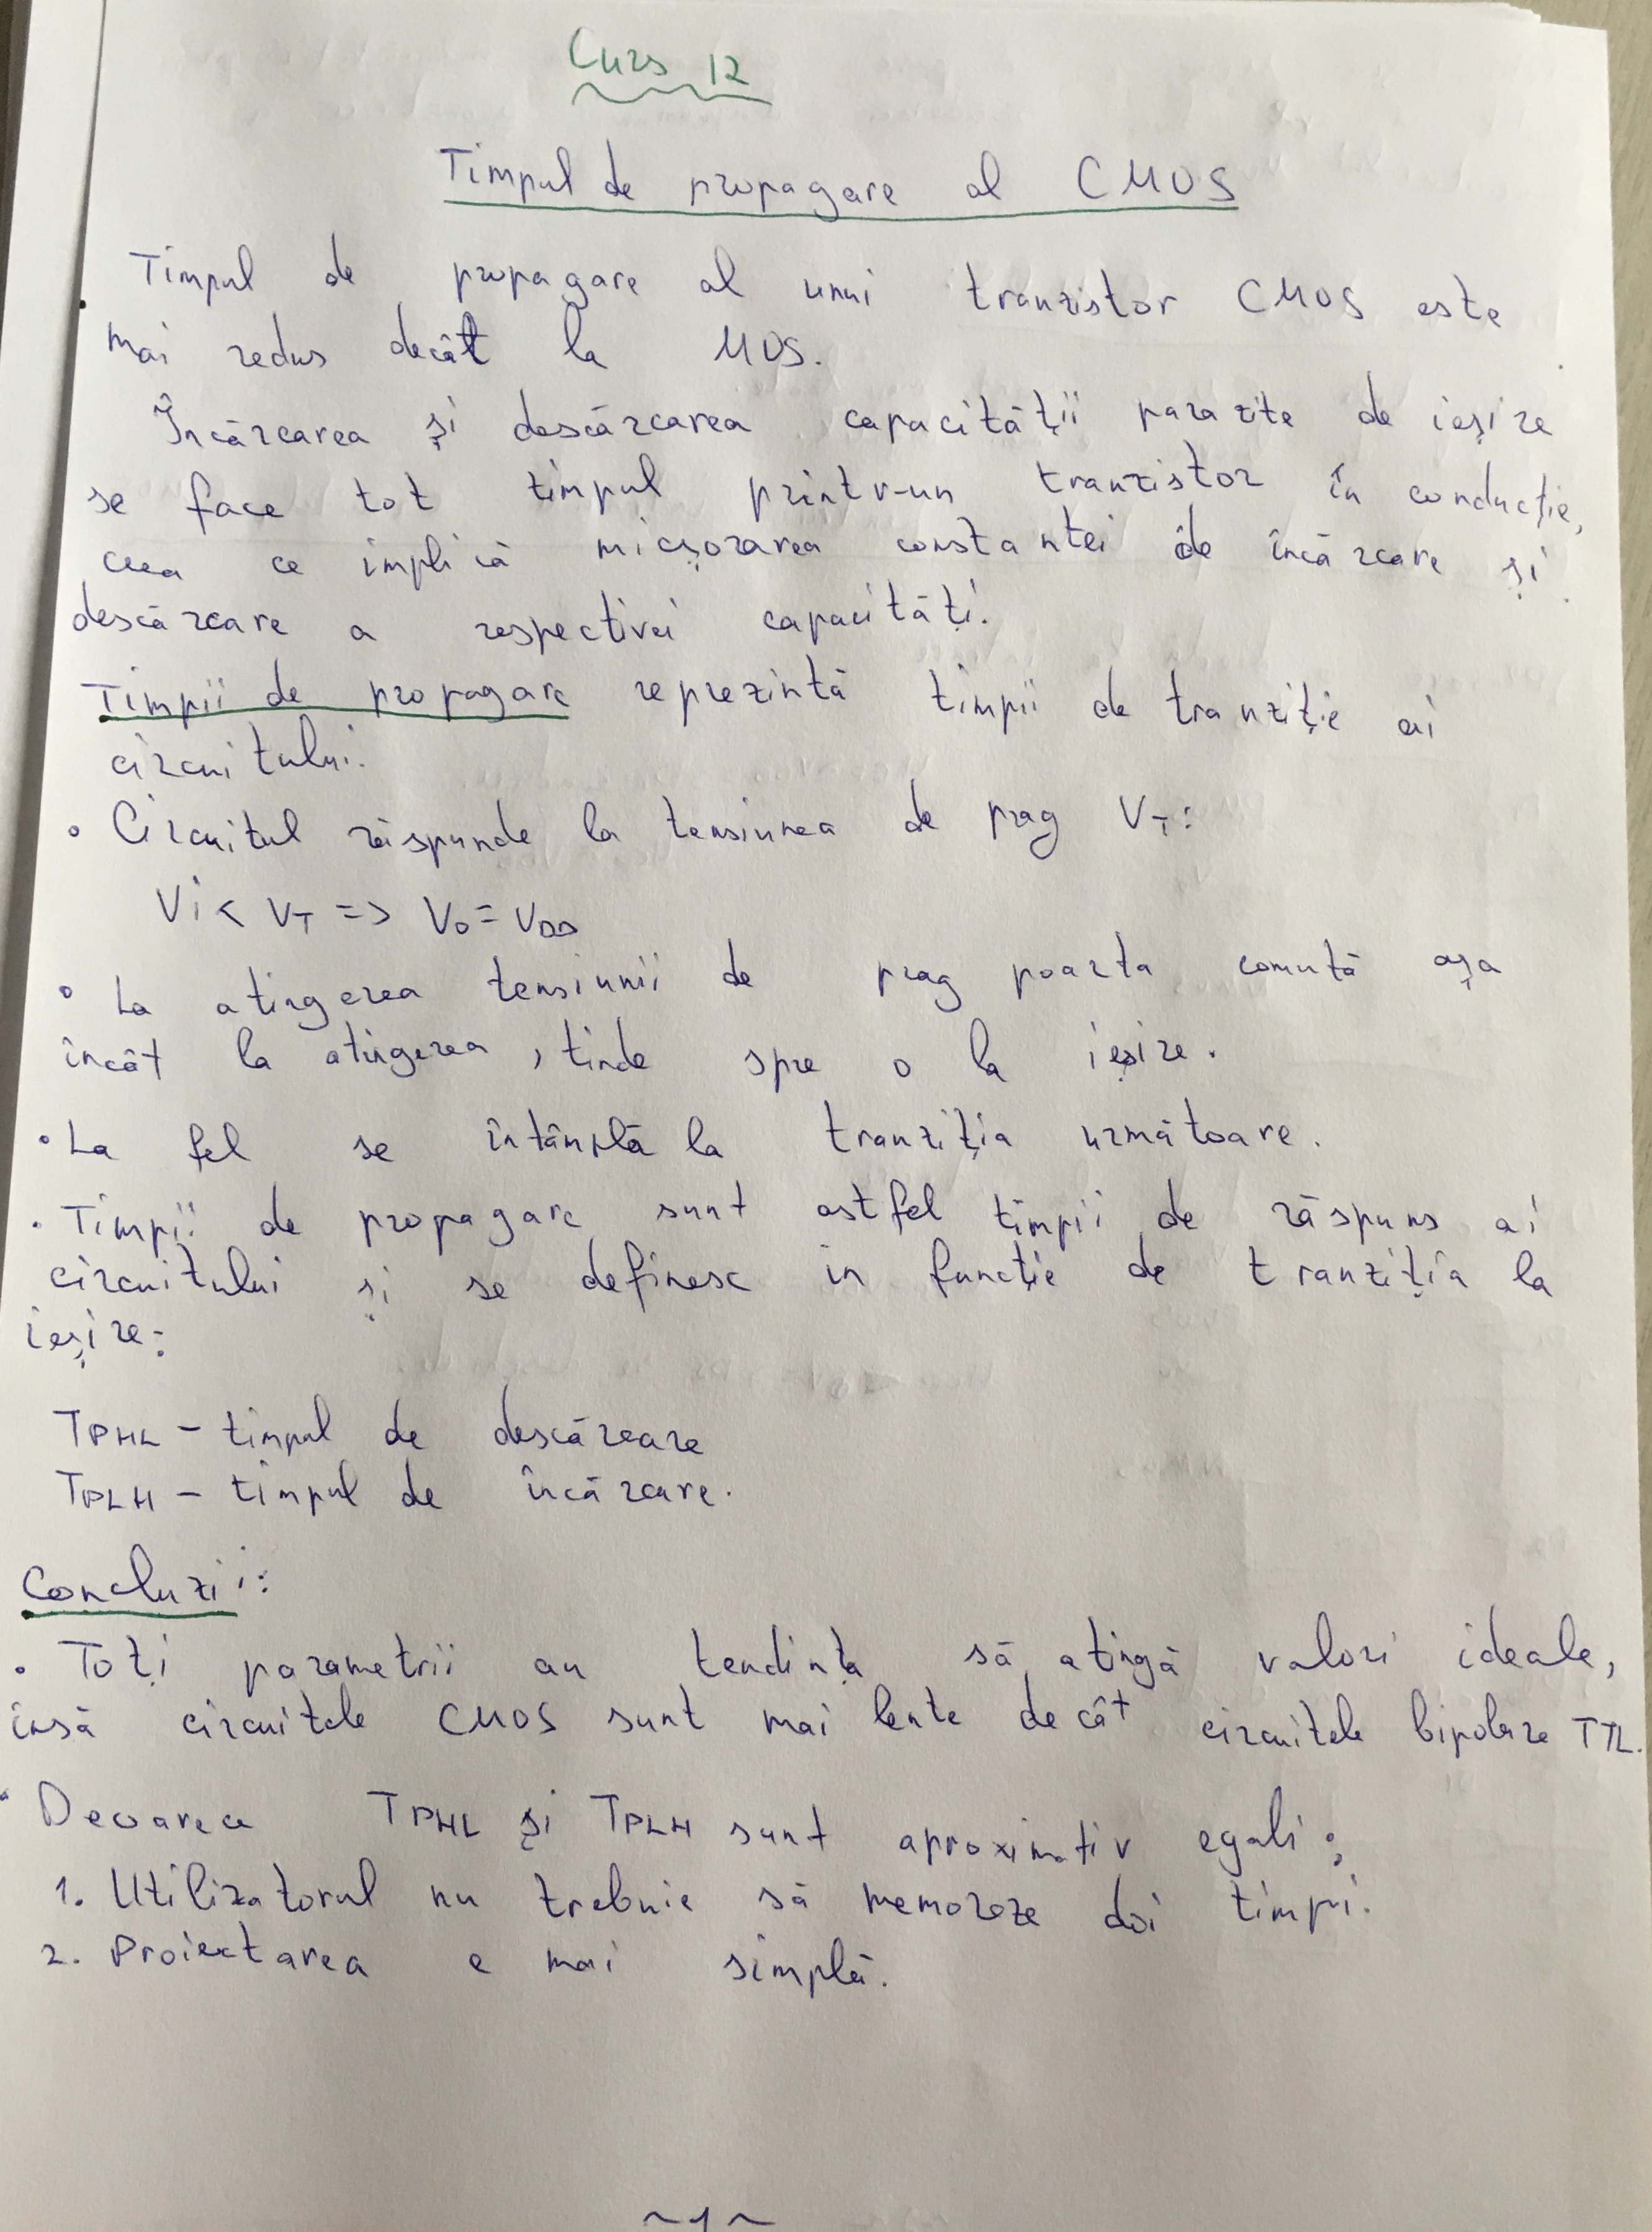 Curs 12
Timpul de propagare al CMOS
Timpul de propagare al unui tranzistor CMOS este
mai redus decât la MOS.
Încărcarea și descărcarea capacității parazite de ieșire
se face tot timpul printr-un tranzistor în conducție,
ceea ce implică micșorarea constantei de încărcare și
descărcare a respectivei capacități.
Timpii de propagare reprezintă timpii de tranziție ai
circuitului.
• Circuitul răspunde la tensiunea de prag VT:
Vi < VT => Vo = VDD
• La atingerea tensiunii de prag poarta comută așa
încât la atingerea, tinde spre 0 la ieșire.
• La fel se întâmplă la tranziția următoare.
• Timpii de propagare sunt astfel timpii de răspuns ai
circuitului și se definesc in funcție de tranziția la
ieșire:
TPHL - timpul de descărcare
TPLH - timpul de încărcare.
Concluzii:
• Toți parametrii au tendința să atingă valori ideale,
însă circuitele CMOS sunt mai lente decât circuitele bipolare TTL.
• Deoarece TPHL și TPLH sunt aproximativ egali;
1. Utilizatorul nu trebuie să memoreze doi timpi.
2. Proiectarea e mai simplă.
~1~